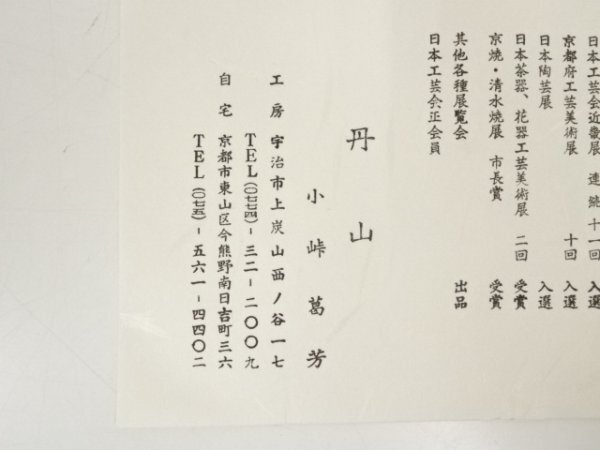 日本工芸会近畿展 連続十一回 入選
京都府工芸美術展 十回 入選
日本陶芸展 入選
日本茶器、花器工芸美術展 二回 受賞
京焼・清水焼展 市長賞 受賞
其他各種展覧会 出品
日本工芸会正会員
丹山
小峠葛芳
工房 宇治市上炭山西ノ谷一七
TEL(〇七七四)-三二-二〇〇九
自宅 京都市東山区今熊野南日吉町三六
TEL(〇七五)-五六一-四四〇二